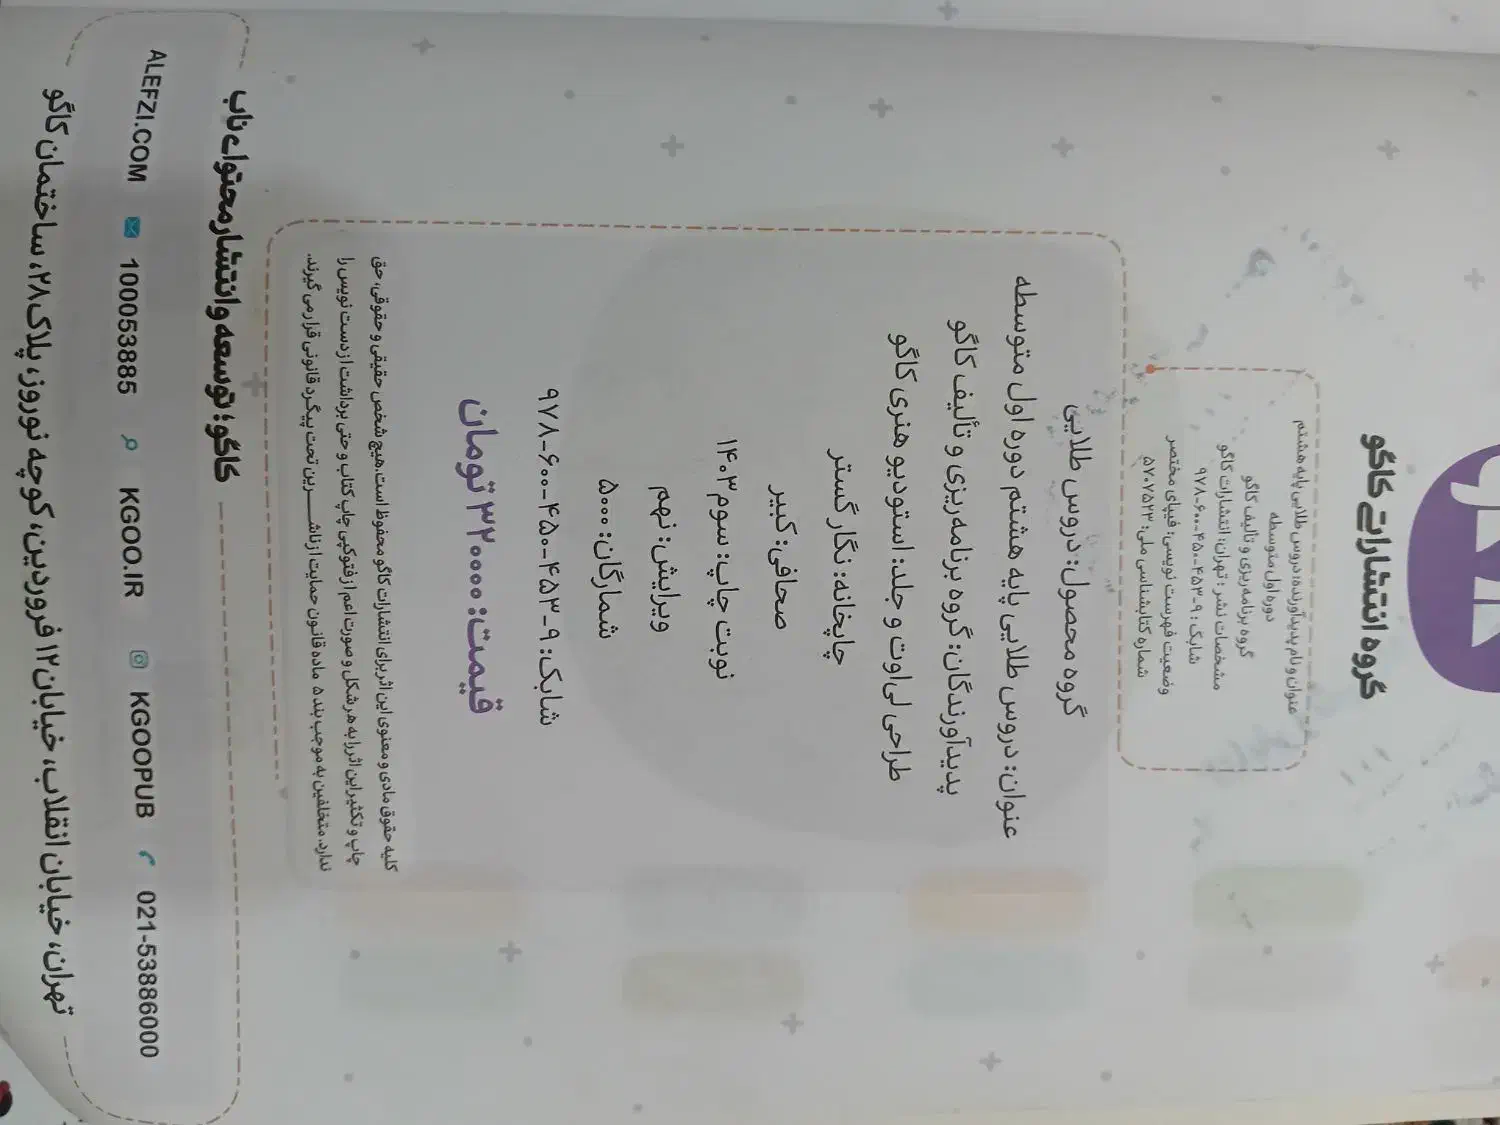 گروه انتشاراتی کاگو
عنوان و نام پدیدآورنده: دروس طلایی پایه هشتم
دوره اول متوسطه
گروه برنامه ریزی و تالیف کاگو
مشخصات نشر: تهران: انتشارات کاگو
شابک: ۹-۴۵۳-۴۵۰-۶۰۰-۹۷۸
وضعیت فهرست نویسی: فیپای مختصر
شماره کتابشناسی ملی: ۵۷۰۷۵۲۳
گروه محصول: دروس طلایی
عنوان: دروس طلایی پایه هشتم دوره اول متوسطه
پدیدآورندگان: گروه برنامه ریزی و تألیف کاگو
طراحی لی اوت و جلد: استودیو هنری کاگو
چاپخانه: نگار گستر
صحافی: کبیر
نوبت چاپ: سوم ۱۴۰۳
ویرایش: نهم
شمارگان: ۵۰۰۰
شابک: ۹-۴۵۳-۴۵۰-۶۰۰-۹۷۸
قیمت: ۳۲۰۰۰۰ تومان
کلیه حقوق مادی و معنوی این اثر برای انتشارات کاگو محفوظ است. هیچ شخص حقیقی و حقوقی، حق
چاپ و تکثیر این اثر را به هر شکل و صورت اعم از فتوکپی چاپ کتاب و حتی برداشت از دست نویس را
ندارد. متخلفین به موجب بند ۵ ماده قانون حمایت از ناشرین تحت پیگرد قانونی قرار می گیرند.
کاگو؛ توسعه و انتشار محتوای ناب
ALEFZI.COM 100053885 KGOO.IR KGOOPUB 021-53886000
تهران، خیابان انقلاب، خیابان ۱۲ فروردین، کوچه نوروز، پلاک ۲۸، ساختمان کاگو